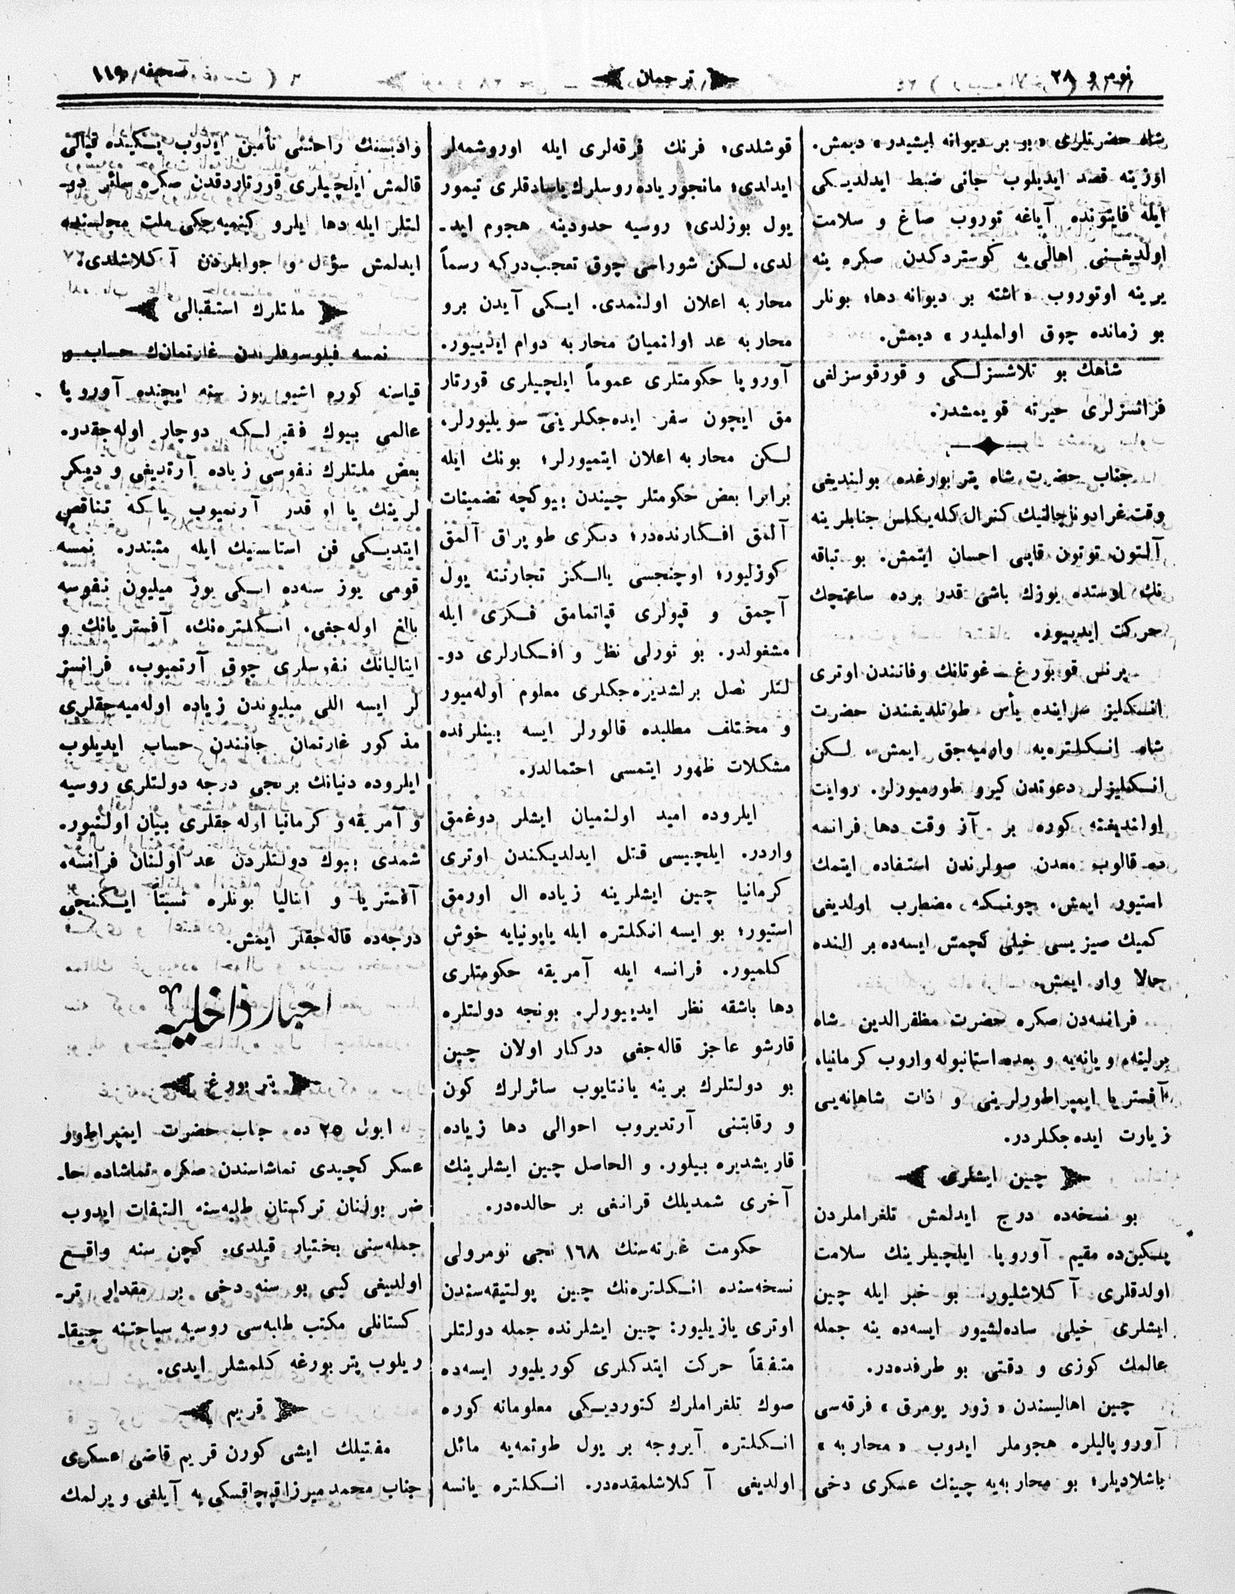 نومرو ٢٨
ترجمان
صحیفه ١١٩
شاه حضرتلری «بو بر دیوانه ایشیدر» دیمش.
اوزینه قصد ایدیلوب جانی ضبط ایدلدیكی
ایله فایتونده آیاغه توروب صاغ و سلامت
اولدیغنی اهالی‌یه كوستردكدن صكره ینه
یرینه اوتوروب «اشته بر دیوانه دها؛ بونلر
بو زمانده چوق اولملیدر» دیمش.
شاهك بو تلاشسزلكی و قورقوسزلغی
فرانسزلری حیرته قویمشدر.
جناب حضرت شاه پتربورغده بولندیغی
وقت غرادوناچالنیك كنرال كله‌یكلس جنابلرینه
آلتون توتون قابی احسان ایتمش. بو تباقه
نك اوستده یوزك باشی قدر برده ساعتچك
حركت ایدییور.
پرنس قوبورغ ــ غوتانك وفاتندن اوتری
انكلیز سراینده یأس طوتلدیغندن حضرت
شاه انكلتره‌یه وارمیه‌جق ایمش، لكن
انكلیزلر دعوتدن كیرو طورمیورلر. روایت
اولندیغنه كوره بر آز وقت دها فرانسه
ده قالوب معدن صولرندن استفاده ایتمك
استیور ایمش. چونكه مضطرب اولدیغی
كمیك صیزیسی خیلی كچمش ایسه‌ده بر النده
حالا وار ایمش.
فرانسه‌دن صكره حضرت مظفرالدین شاه
برلینه، ویانه‌یه و بعده استانبوله واروب كرمانیا،
آفستریا ایمپراطورلرینی و ذات شاهانه‌یی
زیارت ایده‌جكلردر.
چین ایشلری
بو نسخه‌ده درج ایدلمش تلغراملردن
پكین‌ده مقیم آوروپا ایلچیلرینك سلامت
اولدقلری آكلاشلیور. بو خبر ایله چین
ایشلری خیلی ساده‌لشیور ایسه‌ده ینه جمله
عالمك كوزی و دقتی بو طرفده‌در.
چین اهالیسندن «زور یومرق» فرقه‌سی
آوروپالیلره هجوملر ایدوب «محاربه»
باشلادیلر؛ بو محاربه‌یه چینك عسكری دخی
قوشلدی؛ فرنك فرقه‌لری ایله اوروشمه‌لر
ایدلدی؛ مانجوریاده روسلرك یاسادقلری تیمور
یول بوزلدی؛ روسیه حدودینه هجوم اید‌ـ
لدی، لكن شوراسی چوق تعجب‌دركه رسماً
محاربه اعلان اولنمدی. ایكی آیدن برو
محاربه عد اولنمیان محاربه دوام ایدییور.
آوروپا حكومتلری عموماً ایلچیلری قورتار
مق ایچون سفر ایده‌جكلرینی سویلیورلر،
لكن محاربه اعلان ایتمیورلر؛ بونك ایله
برابرا بعض حكومتلر چیندن بیوكچه تضمینات
آلمق افكارنده‌در؛ دیكری طوپراق آلمق
كوزلیور؛ اوچنجسی یالكز تجارتنه یول
آچمق و قپولری قپاتمامق فكری ایله
مشغولدر. بو تورلی نظر و افكارلری دو‌ـ
لتلر نصل برلشدیره‌جكلری معلوم اوله‌میور
و مختلف مطلبده قالورلر ایسه بینلرنده
مشكلات ظهور ایتمسی احتمالدر.
ایلروده امید اولنمیان ایشلر دوغمق
واردر. ایلچیسی قتل ایدلدیكندن اوتری
كرمانیا چین ایشلرینه زیاده ال اورمق
استیور؛ بو ایسه انكلتره ایله یاپونیایه خوش
كلمیور. فرانسه ایله آمریقه حكومتلری
دها باشقه نظر ایدییورلر. بونجه دولتلره
قارشو عاجز قاله‌جغی دركار اولان چین
بو دولتلرك برینه یانتایوب سائرلرك كون
و رقابتنی آرتدیروب احوالی دها زیاده
قاریشدیره بیلور. و الحاصل چین ایشلرینك
آخری شمدیلك قرانغی بر حالده‌در.
حكومت غزته‌سنك ١٦٨ نجی نومرولی
نسخه‌سنده انكلتره‌نك چین پولتیقه‌سندن
اوتری یازیلیور: چین ایشلرنده جمله دولتلر
متفقاً حركت ایتدكلری كوریلیور ایسه‌ده
صوك تلغراملرك كتوردیكی معلوماته كوره
انكلتره آیروجه بر یول طوتمه‌یه مائل
اولدیغی آكلاشلمقده‌در. انكلتره یانسه
وادیسنك راحتنی تأمین ایدوب پكینده قپالی
قالمش ایلچیلری قورتاردقدن صكره سائر دو‌ـ
لتلر ایله دها ایلرو كیتمیه‌جكی ملت مجلسنده
ایدلمش سؤال و جوابلردن آكلاشلدی.
ملتلرك استقبالی
نمسه فیلوسوفلرندن غارتمان‌ك حساب و
قیاسنه كوره اشبو یوز سنه ایچنده آوروپا
عالمی بیوك فقیرلكه دوچار اوله‌جقدر.
بعض ملتلرك نفوسی زیاده آرتدیغی و دیكر
لرینك یا او قدر آرتمیوب یاكه تناقص
ایتدیكی فن استاسنیك ایله مثبتدر. نمسه
قومی یوز سنه‌ده ایكی یوز میلیون نفوسه
بالغ اوله‌جغی، انكلتره‌نك، آفستریانك و
ایتالیانك نفوسلری چوق آرتمیوب، فرانسز
لر ایسه اللی میلیوندن زیاده اوله‌میه‌جقلری
مذكور غارتمان جانبندن حساب ایدیلوب
ایلروده دنیانك برنجی درجه دولتلری روسیه
و آمریقه و كرمانیا اوله‌جقلری بیان اولنیور.
شمدی بیوك دولتلردن عد اولنان فرانسه،
آفستریا و ایتالیا بونلره نسبتاً ایكنجی
درجه‌ده قاله‌جقلر ایمش.
اخبار داخلیه
پتربورغ
ایول ٢٥ ده جناب حضرت ایمپراطور
عسكر كچیدی تماشاسندن صكره تماشاده حا‌ـ
ضر بولنان تركستان طلبه‌سنه التفات ایدوب
جمله‌سنی بختیار قیلدی. كچن سنه واقع
اولدیغی كبی بو سنه دخی بر مقدار تر‌ـ
كستانلی مكتب طلبه‌سی روسیه سیاحتنه چیقا‌ـ
ریلوب پتربورغه كلمشلر ایدی.
قریم
مفتیلك ایشی كورن قریم قاضی عسكری
جناب محمد میرزا قپچاقسكی یه آیلغی ویرلمك